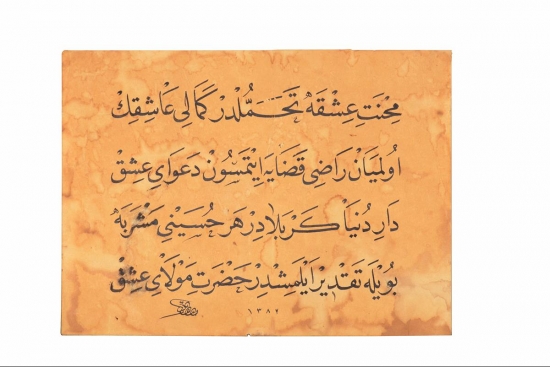 محنتِ عشقه تحمّلدر كمالی عاشقك
اولمیان راضی قضایه ایتمسون دعوای عشق
دارِ دنیا كربلادر هر حسینی مشربه
بویله تقدیر ایلمشدر حضرتِ مولای عشق
١٣٨٢